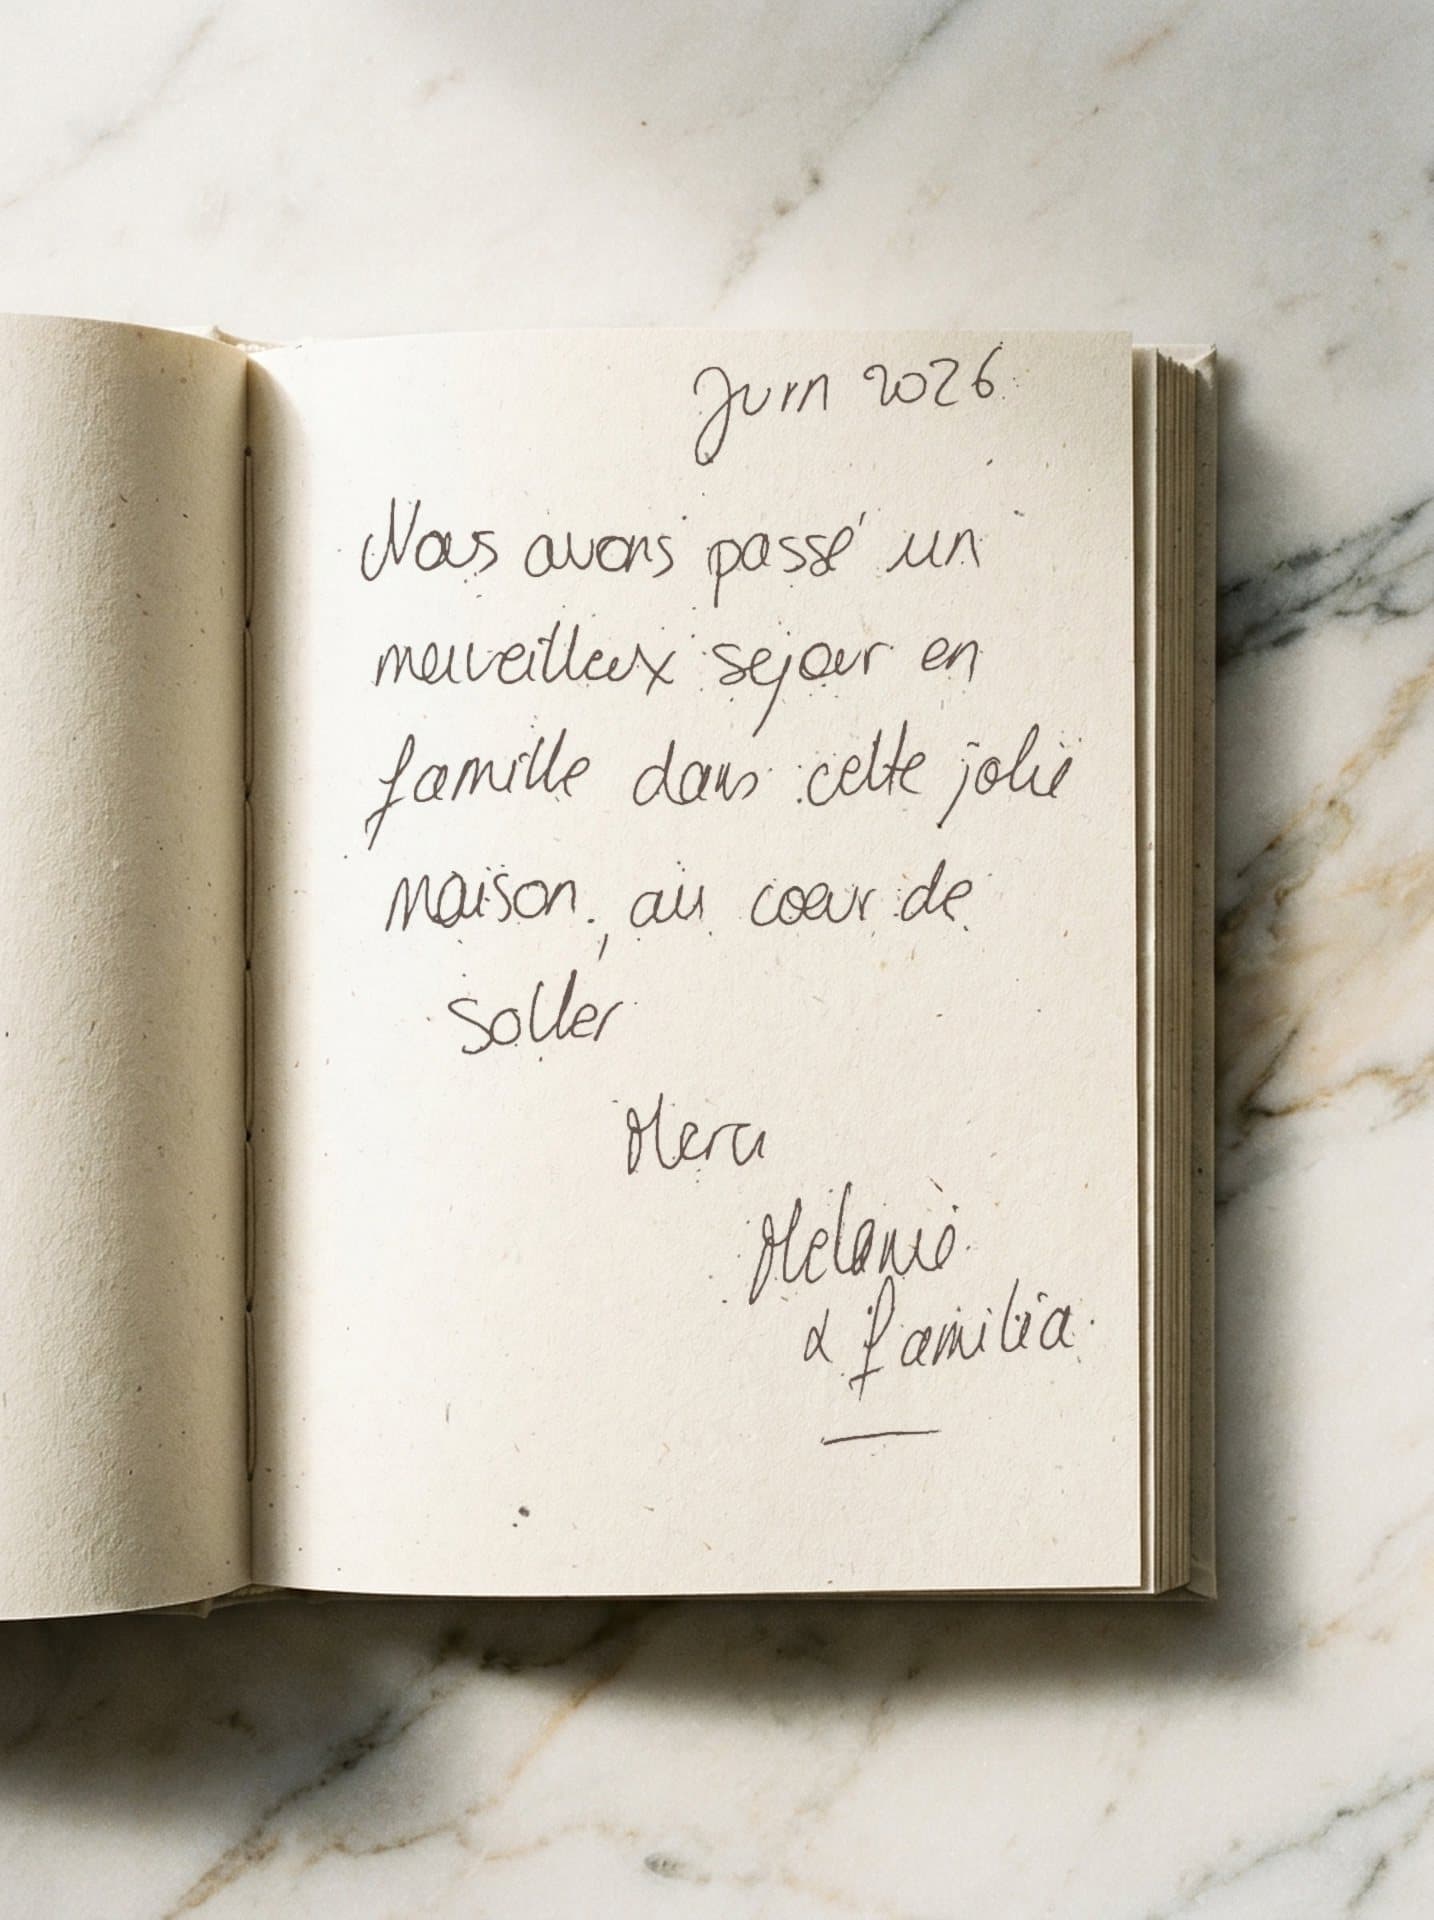 Juin 2026
Nous avons passé un
merveilleux sejour en
famille dans cette jolie
maison, au coeur de
Soller
Merci
Mélanie
& familia